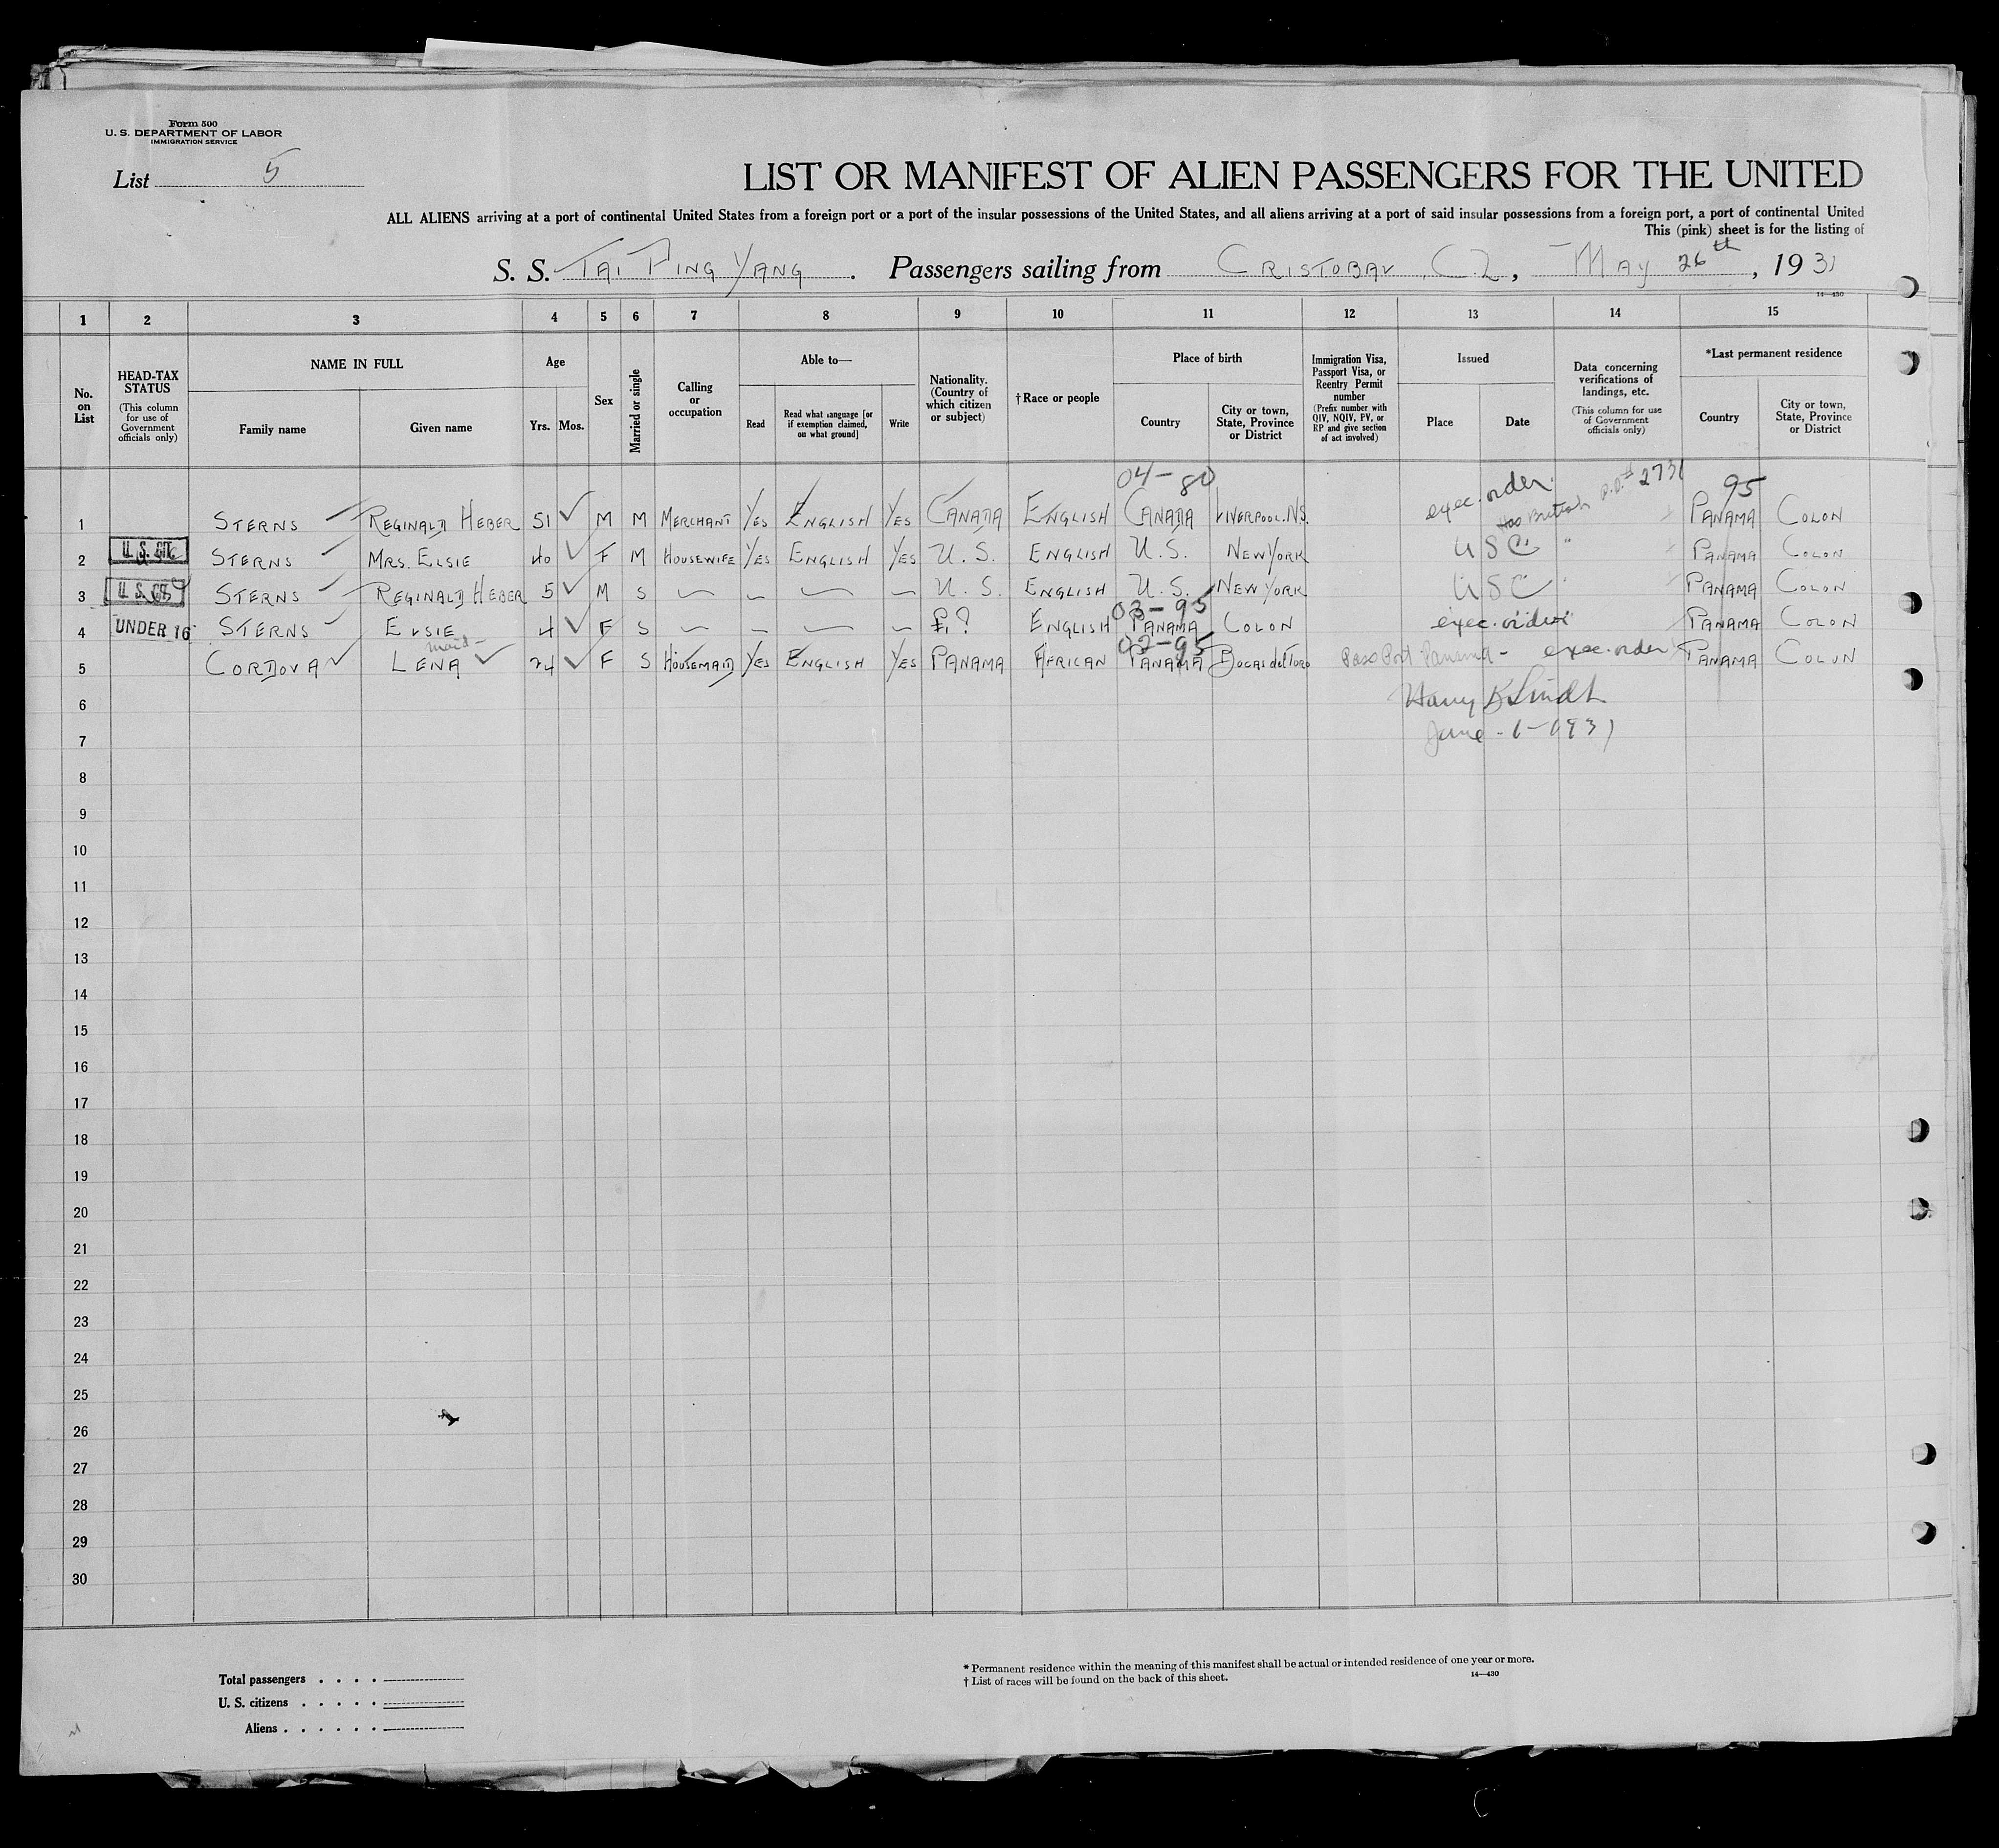 Form 500
U. S. DEPARTMENT OF LABOR
IMMIGRATION SERVICE
List 5
LIST OR MANIFEST OF ALIEN PASSENGERS FOR THE UNITED
ALL ALIENS arriving at a port of continental United States from a foreign port or a port of the insular possessions of the United States, and all aliens arriving at a port of said insular possessions from a foreign port, a port of continental United
This (pink) sheet is for the listing of
S. S. TAI PING YANG . Passengers sailing from CRISTOBAL, CZ, MAY 26th, 1931
14—430
1 2 3 4 5 6 7 8 9 10 11 12 13 14 15
No. on List
HEAD-TAX STATUS (This column for use of Government officials only)
NAME IN FULL
Family name
Given name
Age
Yrs.
Mos.
Sex
Married or single
Calling or occupation
Able to—
Read
Read what language [or if exemption claimed, on what ground]
Write
Nationality. (Country of which citizen or subject)
† Race or people
Place of birth
Country
City or town, State, Province or District
Immigration Visa, Passport Visa, or Reentry Permit number (Prefix number with QIV, NQIV, PV, or RP and give section of act involved)
Issued
Place
Date
Data concerning verifications of landings, etc. (This column for use of Government officials only)
*Last permanent residence
Country
City or town, State, Province or District
04-80 exec. order. 2731 95
1 STERNS REGINALD HEBER 51 M M MERCHANT YES ENGLISH YES CANADA ENGLISH CANADA LIVERPOOL. N.S. Has British PANAMA COLON
2 U. S. CIT. STERNS MRS. ELSIE 40 F M HOUSEWIFE YES ENGLISH YES U. S. ENGLISH U. S. NEW YORK USC " PANAMA COLON
3 STERNS REGINALD HEBER 5 M S U. S. ENGLISH U. S. NEW YORK USC PANAMA COLON
03-95
4 UNDER 16 STERNS ELSIE 4 F S ? ENGLISH PANAMA COLON exec. order PANAMA COLON
maid 02-95
5 CORDOVA LENA 24 F S HOUSEMAID YES ENGLISH YES PANAMA AFRICAN PANAMA Bocas del Toro Pass Port Panama - exec. order PANAMA COLON
6 Harry
7 June - 1 - 1931
8
9
10
11
12
13
14
15
16
17
18
19
20
21
22
23
24
25
26
27
28
29
30
Total passengers . . . .
U. S. citizens . . . . .
Aliens . . . . . .
* Permanent residence within the meaning of this manifest shall be actual or intended residence of one year or more.
† List of races will be found on the back of this sheet.
14—430